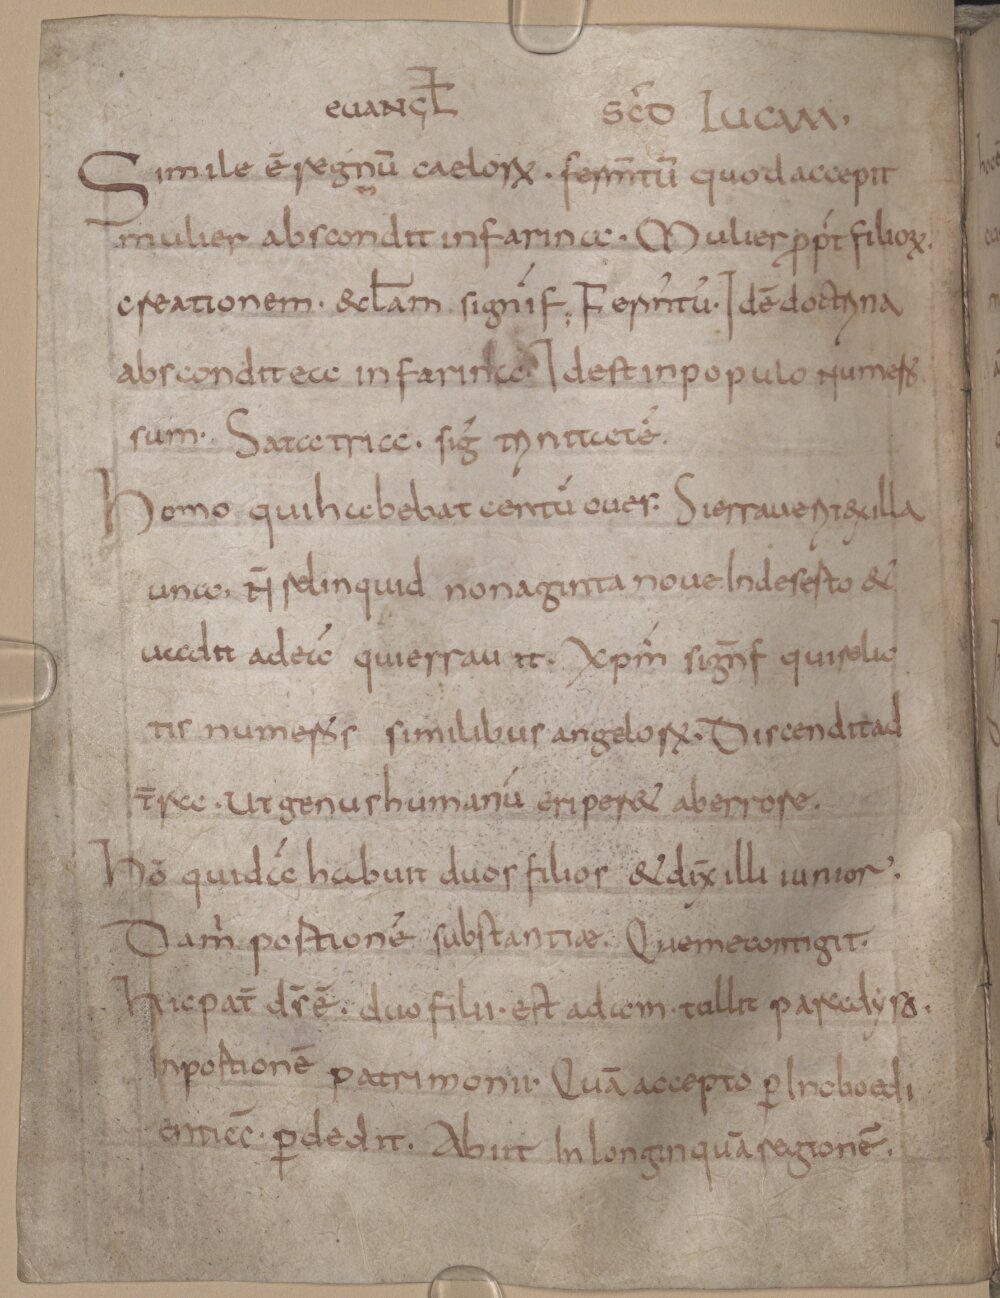 euangł scd̄ lucam.
Simile ē regnū caeloꝝ. fermtū quod accepit
mulier abscondit infarina. Mulier ꝓp̄t filioꝝ.
creationem. &cłam signif; Fermtū. Idē doctrina
abscondit ea infarina. Idest inpopulo numers̄
sum. Sata tria. sig trinitatē.
Homo quihabebat centū oues. Sierrauerit&xilla
una. n̄ relinquid nonaginta noue Indeserto &
uadit adeā quierrauit. Xpm̄ signf quirelic
tis numerS̄s similibus angeloꝝ. Discenditad
t̄ra. Utgenushumanū eriper& aberrore.
Hō quidā habuit duos filios &dix̄ illi iunior.
Dam̄ portionē substantiae. Quemecontigit.
Hicpat̄ dsē. duofilii. est adam. tullit paradys̄.
Inportionē patrimonii. Quā accepto ꝑInoboedi
entiā. ꝑdedit. Abiit Inlonginquā regionē.